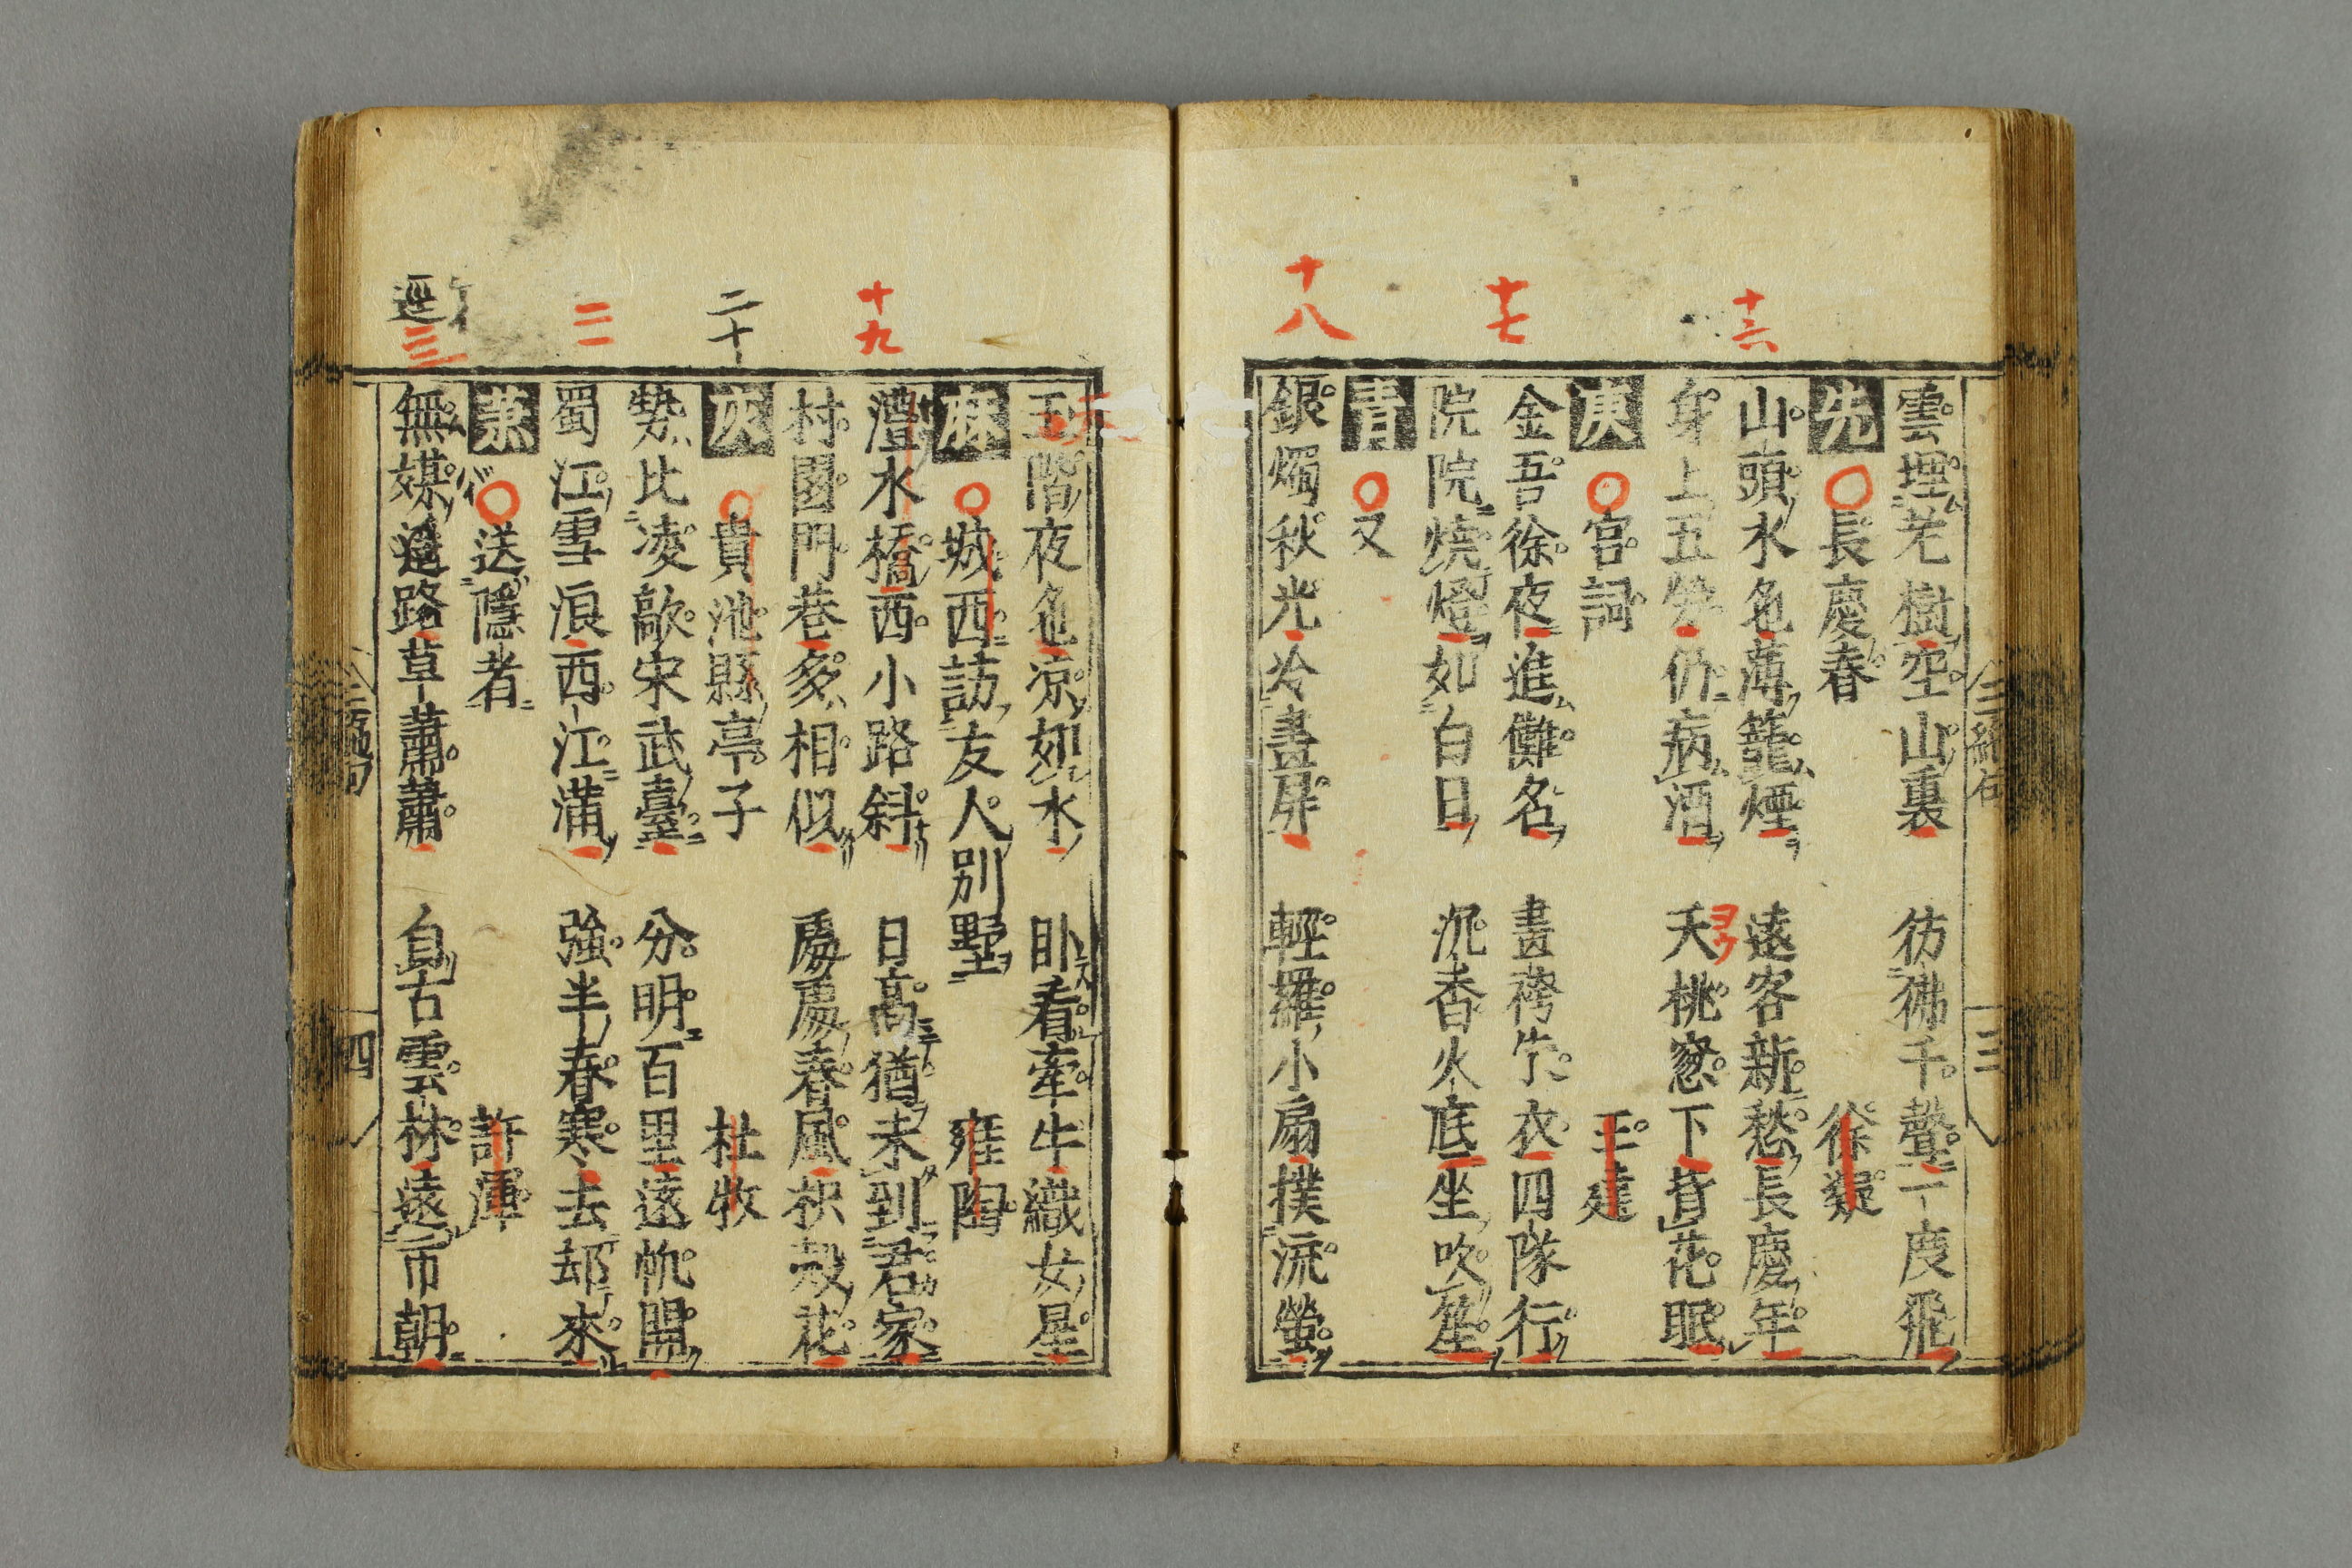 十六
十七
十八
雲埋老樹空山裏 彷彿千聲一度飛
先 長慶春 徐凝
山頭水色薄籠煙 遠客新愁長慶年
身上五勞仍病酒 夭桃窓下背花眠
ヨウ
庚 宮詞 王建
金吾徐夜進儺名 畫袴朱衣四隊行
院院燒燈如白日 沉香火底坐吹笙
青 又
銀燭秋光冷畫屏 輕羅小扇撲流螢
三絶句
三
十九
二十
二一
逕
三
玉階夜色凉如水 卧看牽牛織女星
麻 城西訪友人別墅 雍陶
澧水橋西小路斜 日高猶未到君家
村園門巷多相似 處處春風枳殻花
灰 貴池縣亭子 杜牧
勢比凌歊宋武臺 分明百里遠帆開
蜀江雪浪西江滿 強半春寒去却來
蕭 送隱者 許渾
無媒逕路草蕭蕭 自古雲林遠市朝
三絶句
四